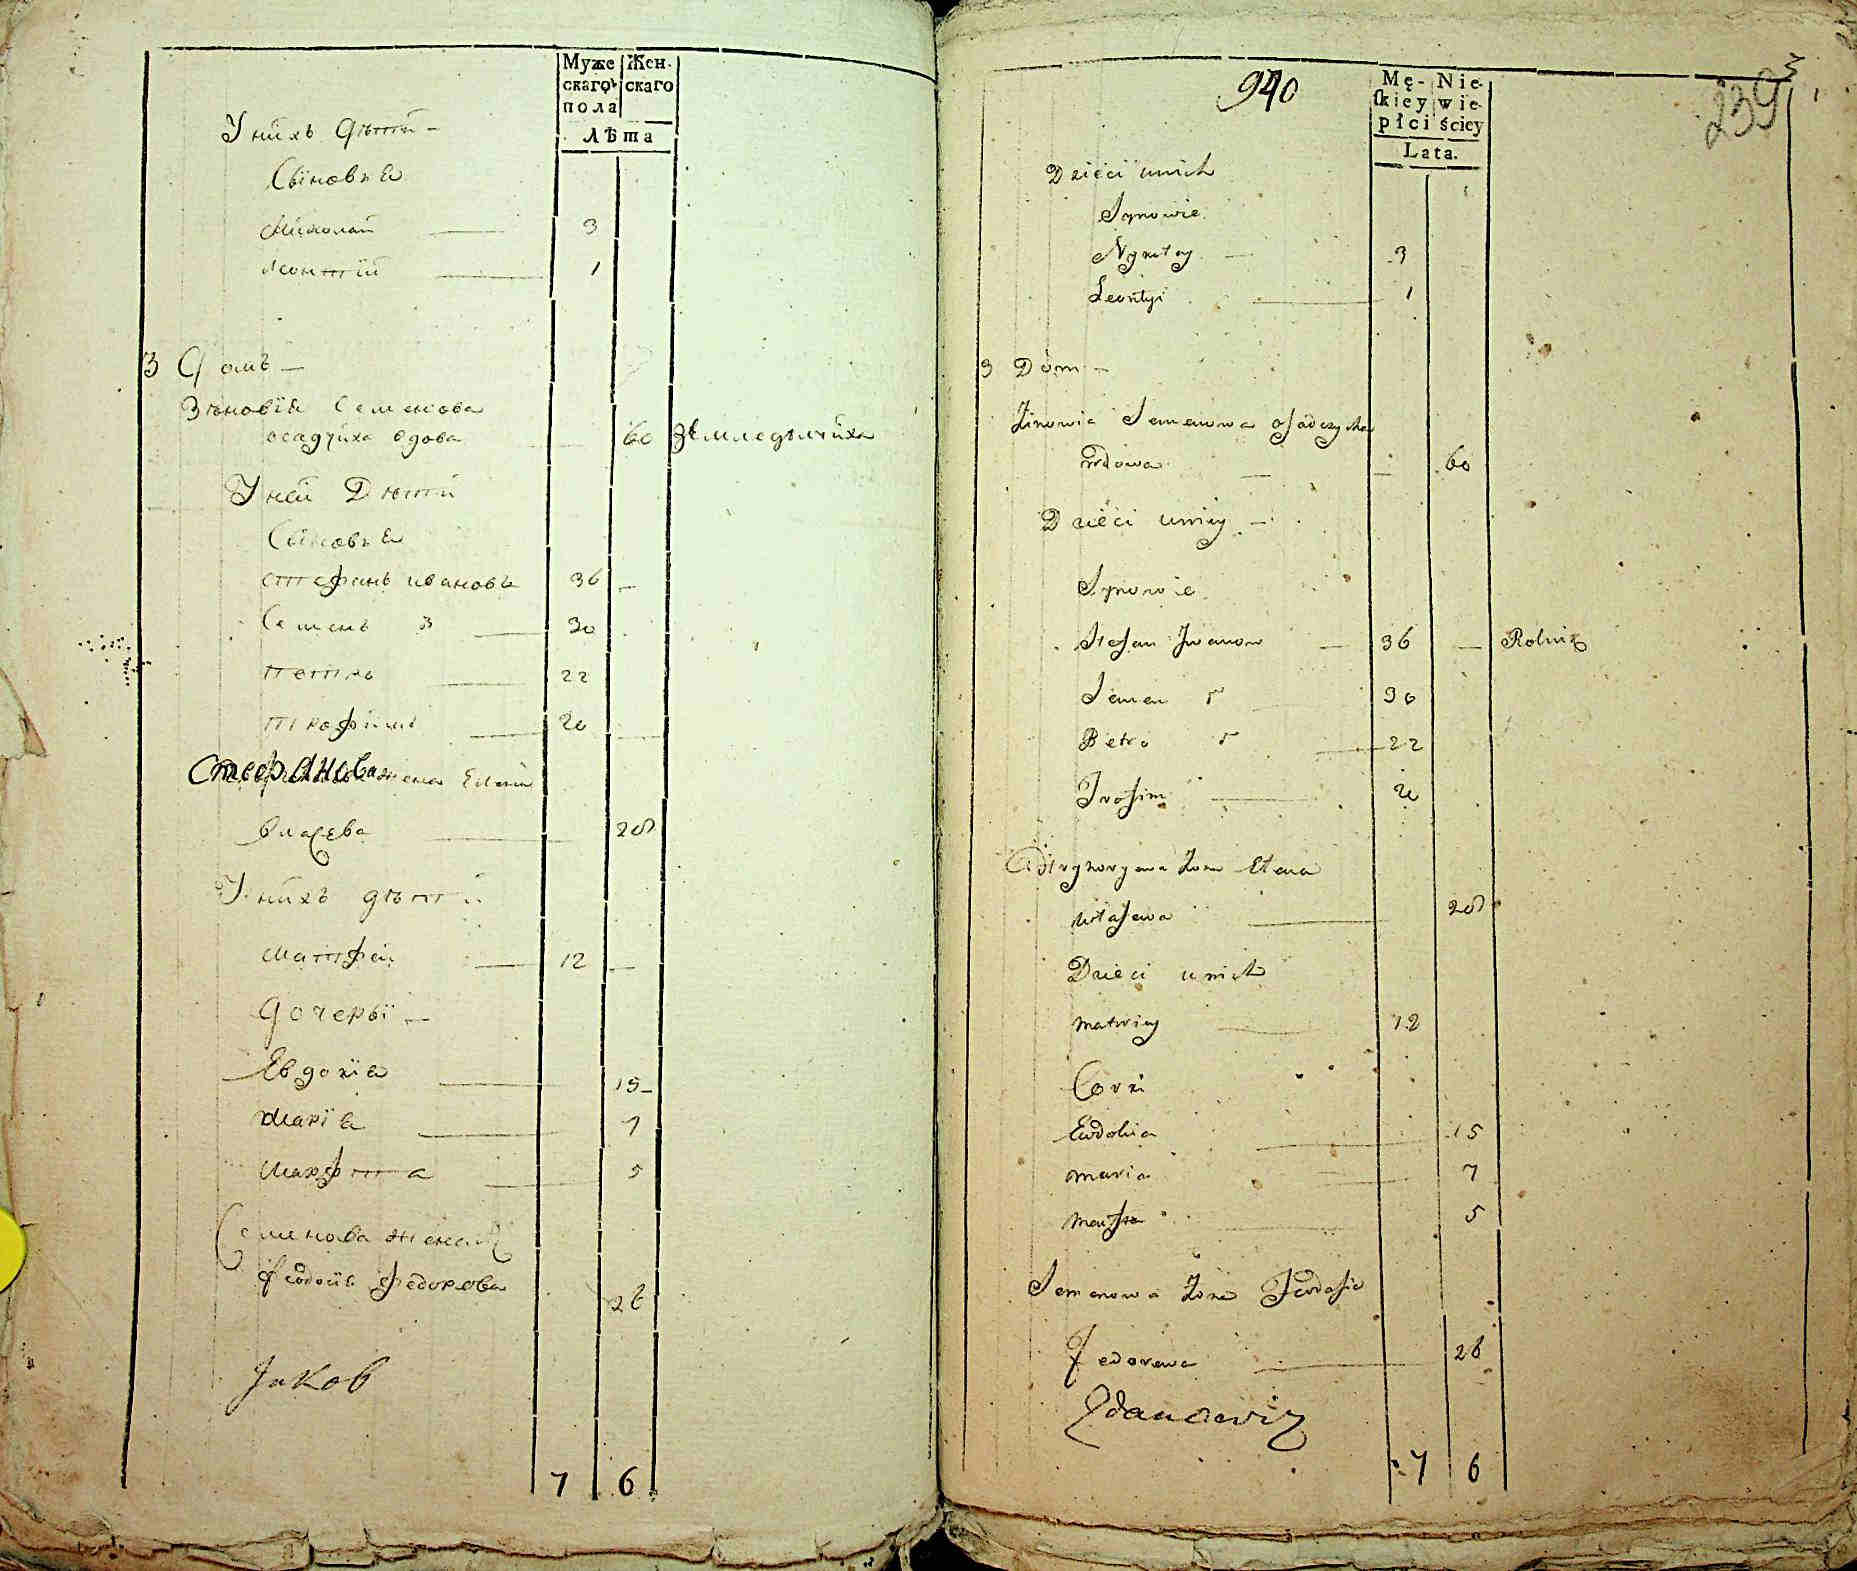 Муже Жен.
скагоъ скаго
пола
Лѣта
У нихъ дѣтй
Сыновья
Николай 3
Леонтїй 1
3 Домъ
Зѣновїя Семенова
осадчиха вдова 60 Землѣделчиха
У ней Дѣтй
Сыновья
Стефанъ ивановъ 36
Семенъ 30
Петръ 22
Трофимъ 20
Стефанова жена Елена
Власева 28
У нихъ дѣтй
Матфей 12
Дочеры
Евдокїя 15
Марїя 7
Марфта 5
Семенова жена
Феодосїя Федорова 26
Jakob
7 6
940
239
Mę- Nie-
skiey wie-
płci ściey
Lata.
Dzieci unich
Synowie
3
Leontyi 1
3 Dóm
Zinowia Semenowa osadczycha
wdowa 60
Dzieci uniey
Synowie
Stefan Iwanow 36 Rolnik
Semen 30
Petro 22
Trofim 20
Hryhoryewa Zona Elena
Własewa 28
Dzieci unich
Matwiey 12
Corki
Ewdokia 15
Maria 7
5
Semenowa Zona Feodosia
Fedorowa 26
Zdanowicz
7 6